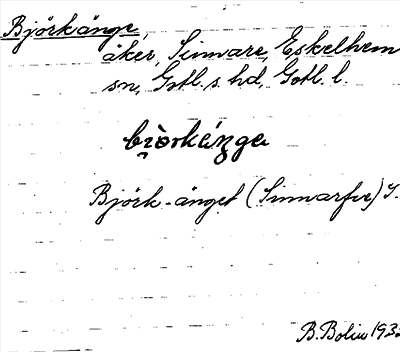 Björkänge,
åker, Simvare, Eskelhem
sn, Gotl. s. hd, Gotl. l.
bìo̱rkáŋgə
Björk-änget (Sinnarfve) J.
B. Bolin 193